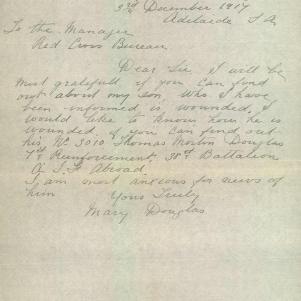 3rd December 1917
Adelaide S A
To the Manager
Red Cross Bureau
Dear Sir I will be
most gratefull if you can find
out about my son, who I have
been informed is wounded, I
would like to know how he is
wounded, if you can find out
his No 3010 Thomas Douglas
7th Reinforcement, 38th Battalion
A. I. F. Abroad,
I am most anxious for news of
him Yours Truly
Mary Douglas